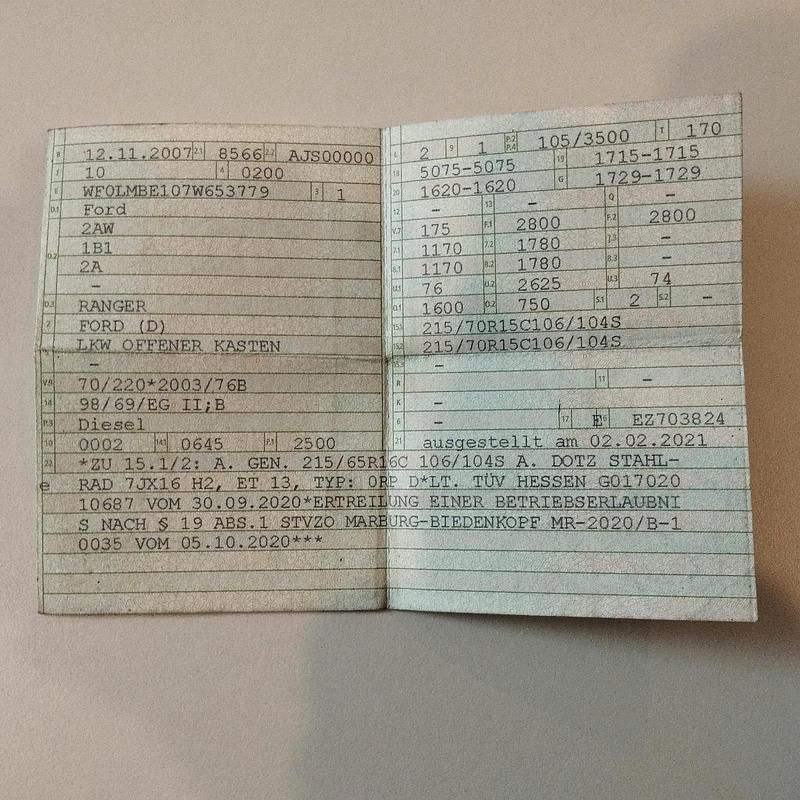 B 12.11.2007 2.1 8566 2.2 AJS00000
J 10 4 0200
E WF0LMBE107W653779 3 1
D.1 Ford
2AW
D.2 1B1
2A
-
D.3 RANGER
2 FORD (D)
5 LKW OFFENER KASTEN
-
V.9 70/220*2003/76B
14 98/69/EG II;B
P.3 Diesel
10 0002 14.1 0645 P.1 2500
L 2 9 1 P.2 P.4 105/3500 T 170
18 5075-5075 19 1715-1715
20 1620-1620 G 1729-1729
12 - 13 - Q -
V.7 175 F.1 2800 F.2 2800
7.1 1170 7.2 1780 7.3 -
8.1 1170 8.2 1780 8.3 -
U.1 76 U.2 2625 U.3 74
O.1 1600 O.2 750 S.1 2 S.2 -
15.1 215/70R15C106/104S
15.2 215/70R15C106/104S
15.3 -
R - 11 -
K -
6 - 17 E 16 EZ703824
21 ausgestellt am 02.02.2021
22 *ZU 15.1/2: A. GEN. 215/65R16C 106/104S A. DOTZ STAHL-
RAD 7JX16 H2, ET 13, TYP: 0RP D*LT. TÜV HESSEN G017020
10687 VOM 30.09.2020*ERTREILUNG EINER BETRIEBSERLAUBNI
S NACH § 19 ABS.1 STVZO MARBURG-BIEDENKOPF MR-2020/B-1
0035 VOM 05.10.2020***